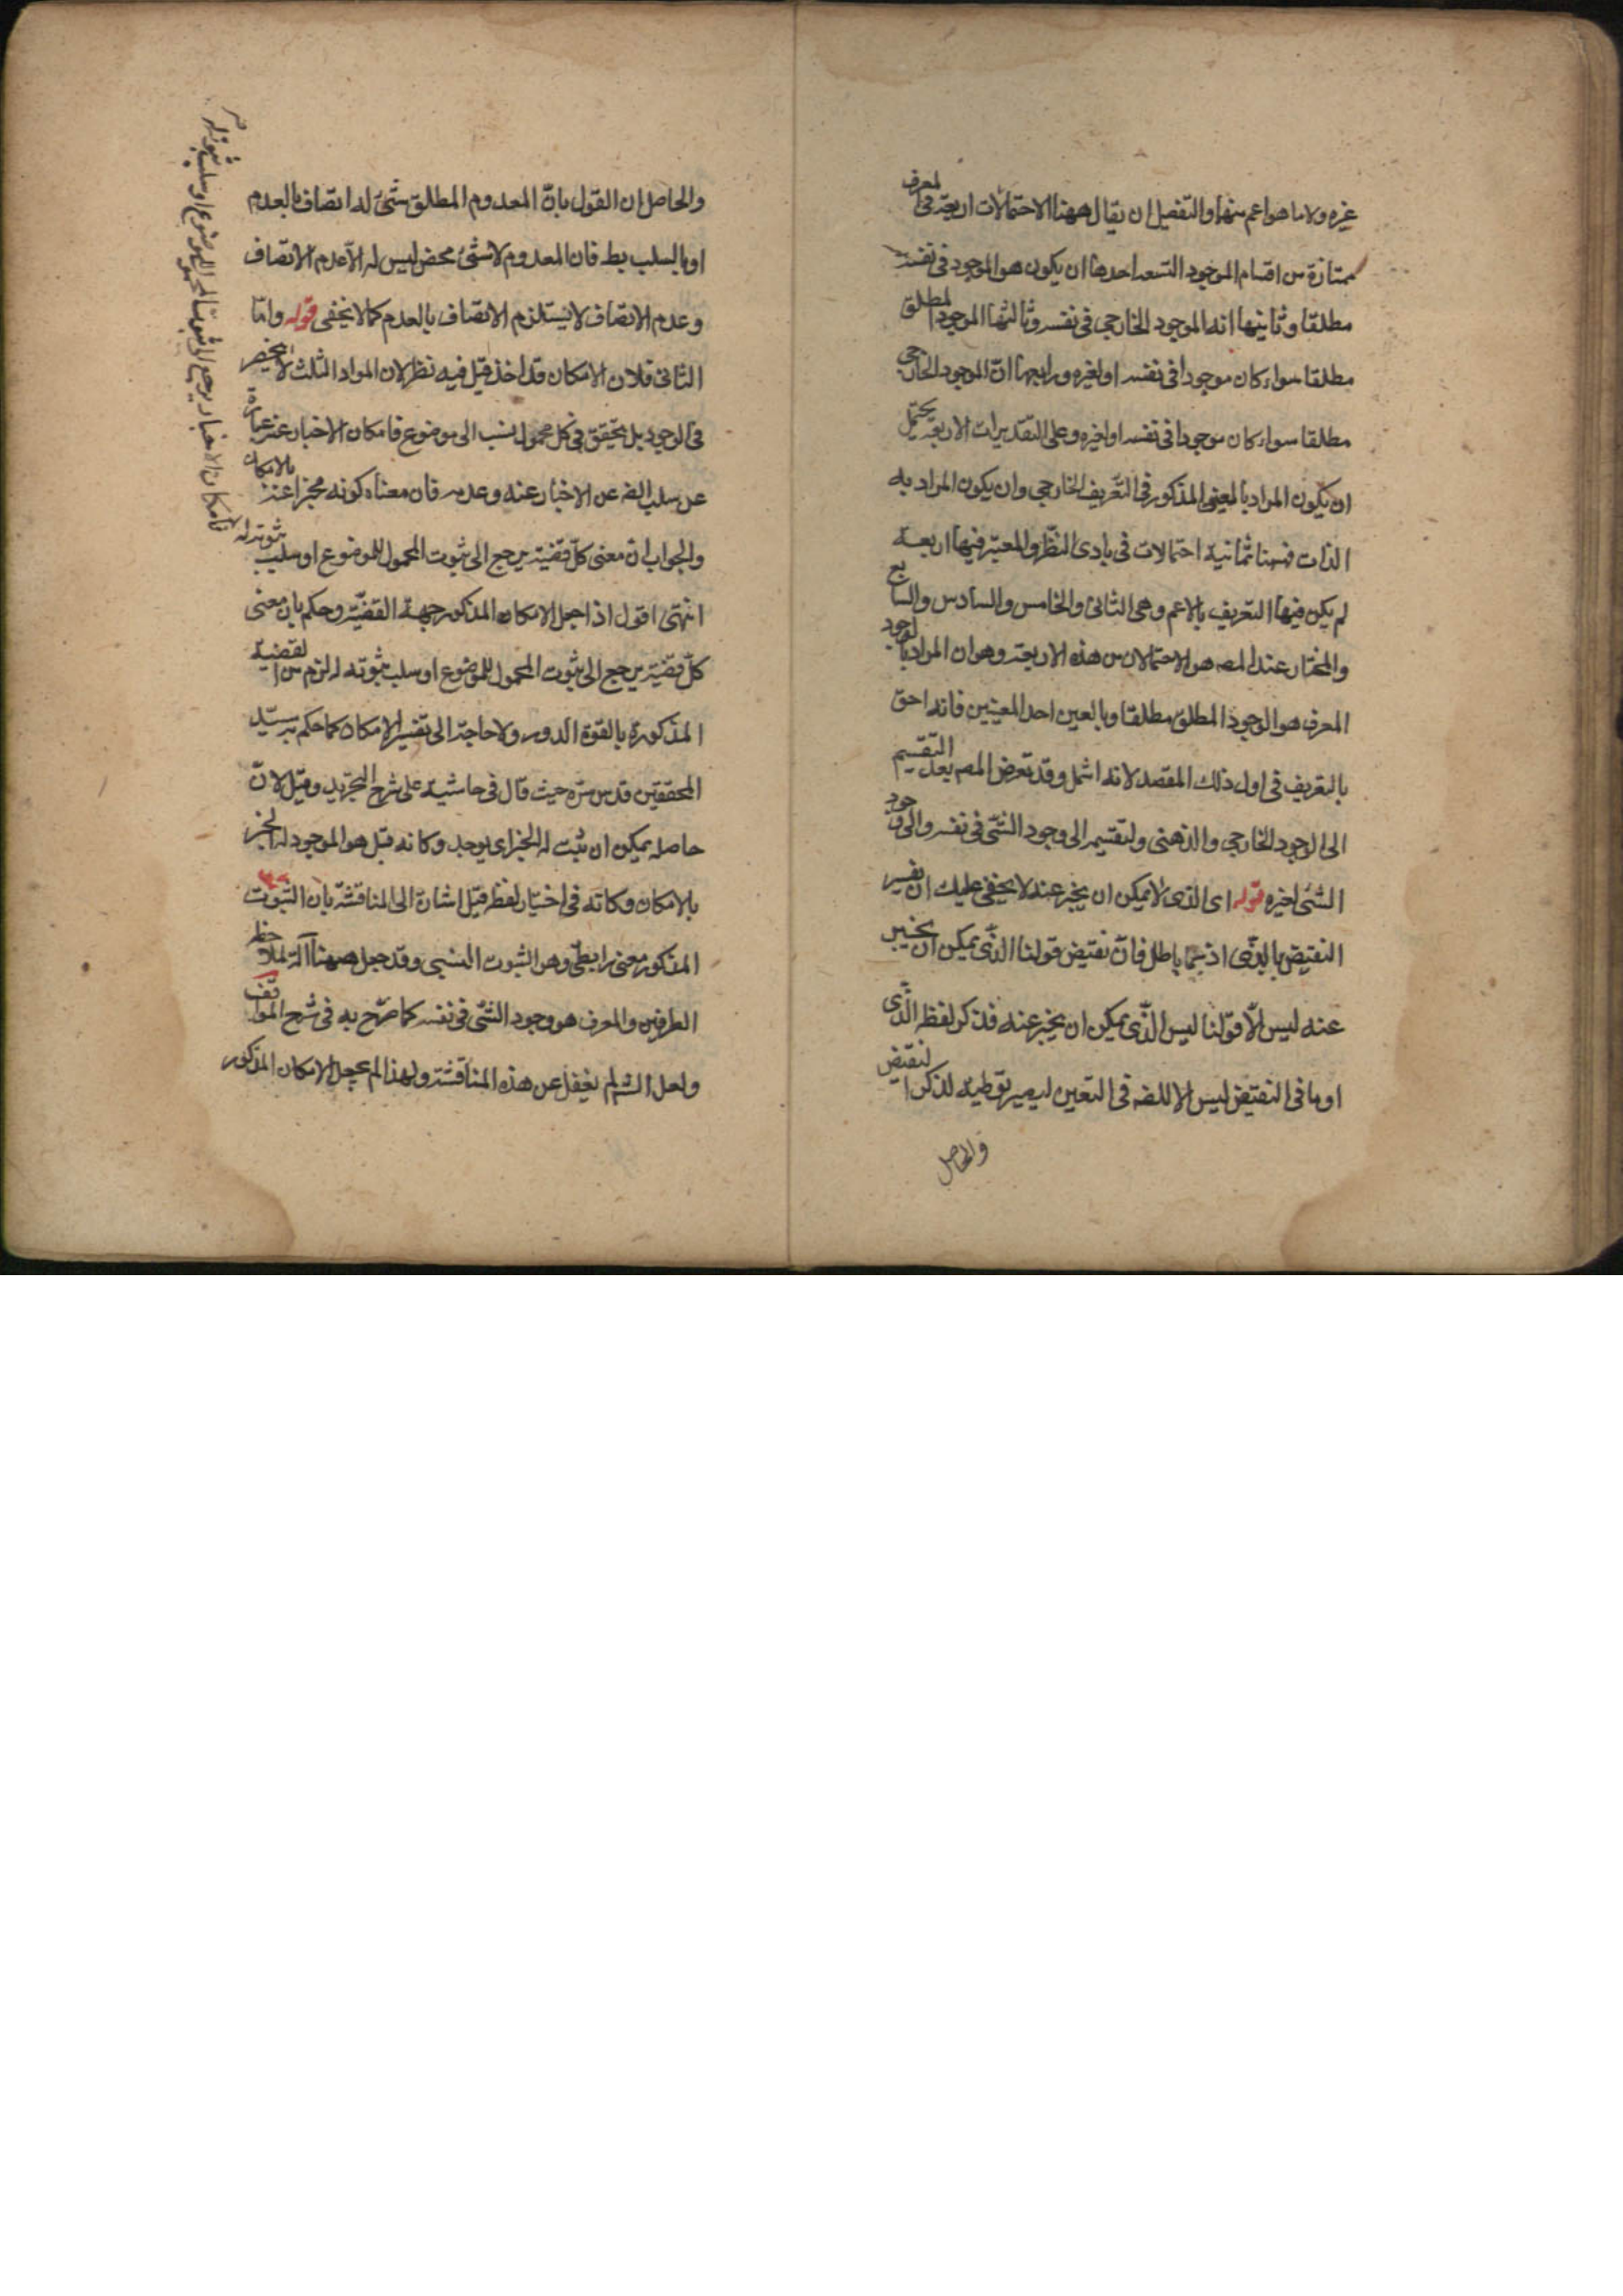 غيره ولا ما هو اعم منها والتفصيل ان يقال ههنا الاحتمالات اربعة فى المعرف
ممتازة من اقسام الموجود التسعه احدها ان يكون هو الموجود فى نفسه
مطلقا وثانيها انه الموجود الخارجى فى نفسه وثالثها الموجود المطلق
مطلقا سواء كان موجودا فى نفسه او لغيره ورابعها انّ الموجود الخارجى
مطلقا سواء كان موجودا فى نفسه او لغيره وعلى التقديرات الاربعة يحتمل
ان يكون المراد بالمعنى المذكور فى التعريف الخارجى وان يكون المراد به
الذات فههنا ثمانية احتمالات فى بادى النظر والمعتبر فيها اربعة
لم يكن فيها التعريف بالاعم وهى الثانى والخامس والسادس والسابع
والمختار عند المصه هو الاحتمالان من هذه الاربعة وهو ان المراد بالوجود
المعرف هو الوجود المطلق مطلقا وبالعين احد المعينين فانه احق
بالتعريف فى اول ذلك المقصد لانه اشمل وقد تعرض المصه بعد التقسيم
الى الوجود الخارجى والذهنى ولتقسيمه الى وجود الشئ فى نفسه والى وجود
الشئ لغيره قوله اى الذى لا يمكن ان يخبر عنه لا يخفى عليك ان تفسير
النقيض بالذى اذ بما باطل فانّ نقيض قولنا الذى يمكن ان يخبر
عنه ليس الّا قولنا ليس الذى يمكن ان يخبر عنه فذكر لفظ الذى
او ما فى النقيض ليس الا للضه فى التعين ليصير توطية لذكر النقيض
والحاصل
والحاصل ان القول بانّ المعدوم المطلق شئ له اتصاف بالعدم
او بالسلب بط فان المعدوم لا شئ محض ليس له الّا عدم الاتصاف
وعدم الاتصاف لا يستلزم الاتصاف بالعدم كما لا يخفى قوله وامّا
الثانى فلان الامكان قد اخذ قيل فيه نظر لان المواد الثلث لا ينحصر
فى الوجود بل يتحقق فى كل محمول ينسب الى موضوع فامكان الاخبار عنه عبارة
عن سلب الضه عن الاخبار عنه وعدمه فان معناه كونه مخبرا عنه بالامكان
والجواب ان معنى كلّ قضية يرجع الى ثبوت المحمول للموضوع او سلب ثبوته له
انتهى اقول اذا جعل الامكان المذكور جهة القضيّة وحكم بان معنى
كلّ قضية يرجع الى ثبوت المحمول للموضوع او سلب ثبوته له لزم من القضية
المذكورة بالقوة الدور ولا حاجة الى تفسير الامكان كما حكم به سيّد
المحققين قدس سّره حيث قال فى حاشية على شرح التجريد وقيل لانّ
حاصله يمكن ان ثبت له الخبر اى يوجد وكانه قيل هو الموجود له الخبر
بالامكان وكانه فى اختيار لفظ قيل اشارة الى المناقشة بان الثبوت
المذكور معنى رابطى وهو الثبوت النسبى وقد جعل ههنا آلة لملاحظه
الطرفين والمعرف هو وجود الشئ فى نفسه كما صرّح به فى شرح المواقف
ولعل الشه لم يغفل عن هذه المناقشة ولهذا لم يجعل الامكان المذكور
فامكان الاخبار يرجع الى ثبوت المحمول للموضوع او سلب ثبوته له